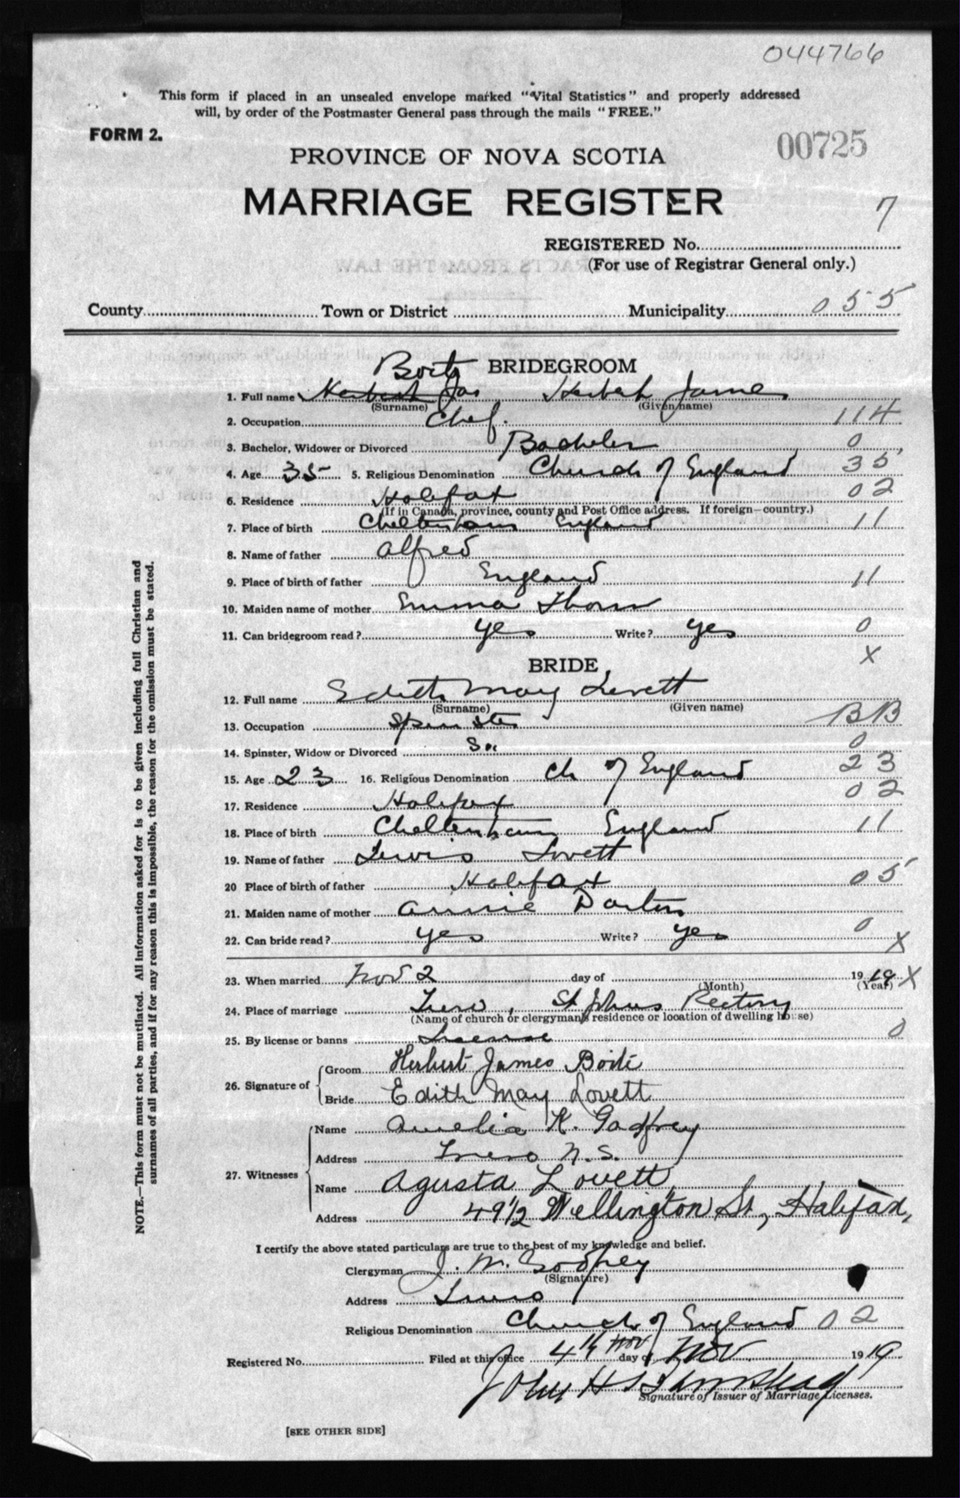 044766
This form if placed in an unsealed envelope marked "Vital Statistics" and properly addressed
will, by order of the Postmaster General pass through the mails "FREE."
FORM 2.
00725
PROVINCE OF NOVA SCOTIA
MARRIAGE REGISTER
7
REGISTERED No.
(For use of Registrar General only.)
County Town or District Municipality 055
BRIDEGROOM
1. Full name Herbert Jas Herbert James
(Surname) (Given name)
2. Occupation Chef. 114
3. Bachelor, Widower or Divorced Bachelor 0
4. Age 35 5. Religious Denomination Church of England 35
6. Residence Halifax 02
(If in Canada, province, county and Post Office address. If foreign—country.)
7. Place of birth Cheltenham England 11
8. Name of father Alfred
9. Place of birth of father England 11
10. Maiden name of mother Emma
11. Can bridegroom read? yes Write? yes 0
X
BRIDE
12. Full name Edith May Lovett
(Surname) (Given name)
13. Occupation Spinster BB
14. Spinster, Widow or Divorced 0
15. Age 23 16. Religious Denomination Ch of England 23
17. Residence Halifax 02
18. Place of birth Cheltenham England 11
19. Name of father Lewis Lovett
20 Place of birth of father Halifax 05
21. Maiden name of mother Annie
22. Can bride read? yes Write? yes 0 X
23. When married Nov 2 day of 1919 X
(Month) (Year)
24. Place of marriage Truro, St Johns Rectory
(Name of church or clergyman's residence or location of dwelling house)
25. By license or banns License 0
26. Signature of Groom Herbert James
Bride Edith May Lovett
27. Witnesses Name Amelia K. Godfrey
Address Truro N.S.
Name Agusta Lovett
Address 49½ Wellington St, Halifax,
I certify the above stated particulars are true to the best of my knowledge and belief.
Clergyman J. M. Godfrey
(Signature)
Address Truro
Religious Denomination Church of England 02
Registered No. Filed at this office 4th Nov day of Nov 1919
John H
Signature of Issuer of Marriage Licenses.
[SEE OTHER SIDE]
NOTE.—This form must not be mutilated. All information asked for is to be given including full Christian and
surnames of all parties, and if for any reason this is impossible, the reason for the omission must be stated.